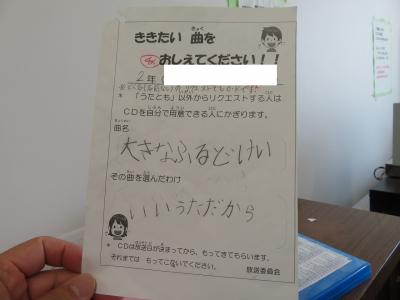 ききたい 曲を
きょく
おしえてください！！
2年
＊ 「うたとも」以外からリクエストする人は
CDを自分で用意できる人にかぎります。
曲名
大きなふるどけい
その曲を選んだわけ
いいうただから
＊ CDは放送日が決まってから、もってきてもらいます。
それまでは もってこないでください。
放送委員会